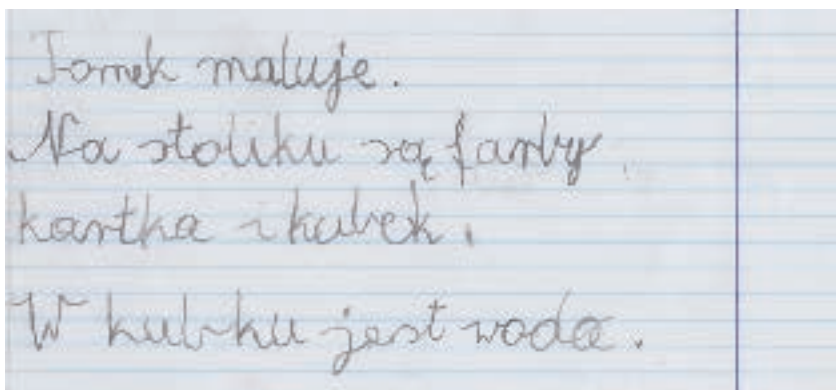 Tomek maluje.
Na stoliku są farby,
kartka i kubek.
W kubku jest woda.